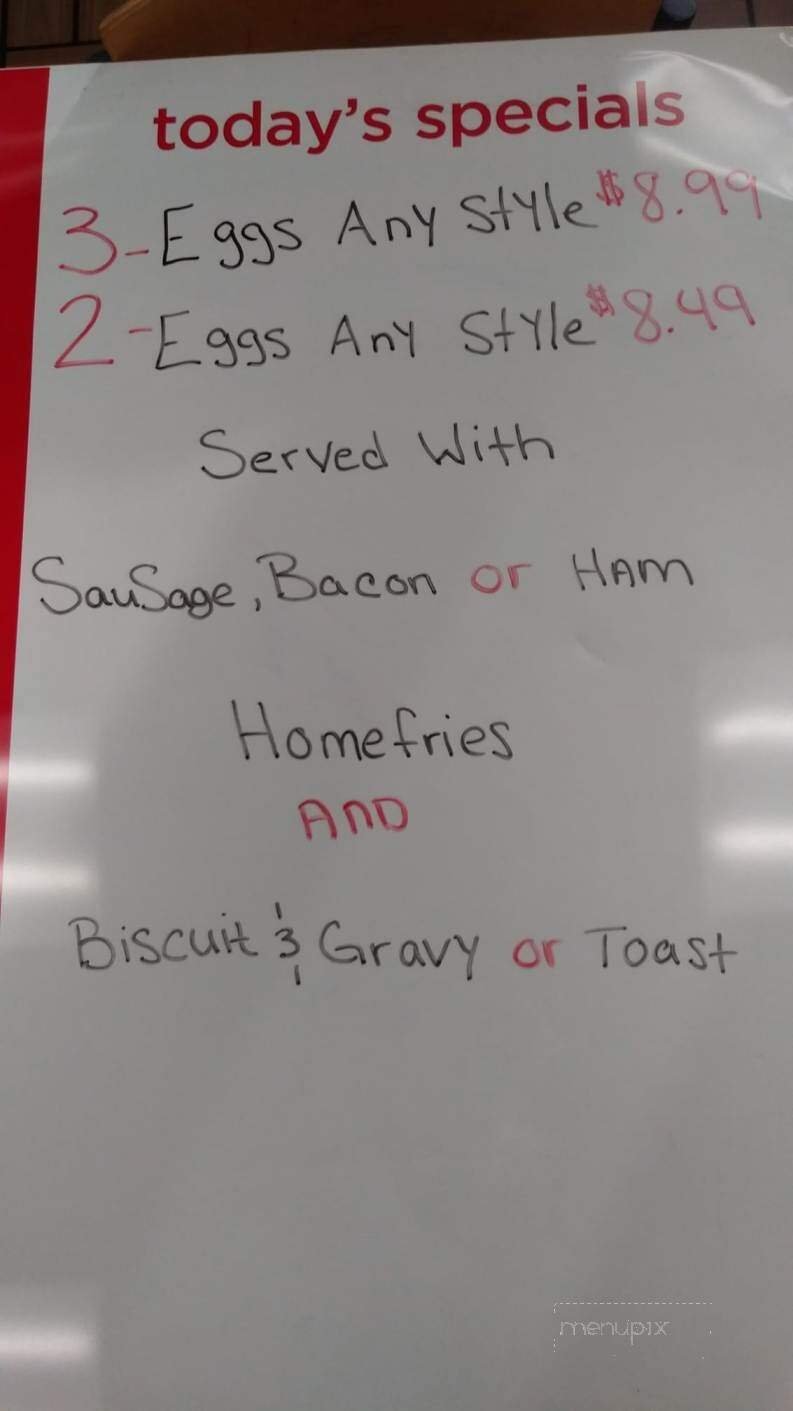 today's specials
3-Eggs Any Style $8.99
2-Eggs Any Style $8.49
Served With
Sausage, Bacon or Ham
Homefries
AND
Biscuit & Gravy or Toast
menupix